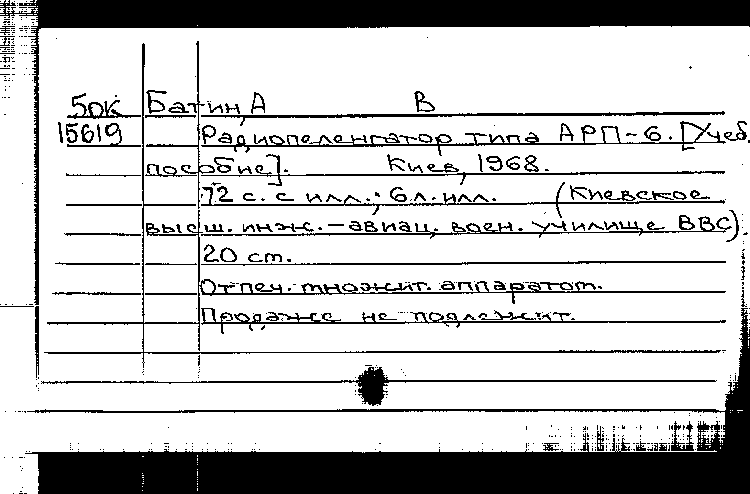 5ОК Батин, А В
15619 Радиопеленгатор типа АРП-6. [Учеб.
пособие]. Киев, 1968.
72 с. с илл.; 6 л. илл. (Киевское
высш. инж.-авиац. воен. училище ВВС).
20 см.
Отпеч. множит. аппаратом.
Продаже не подлежит.